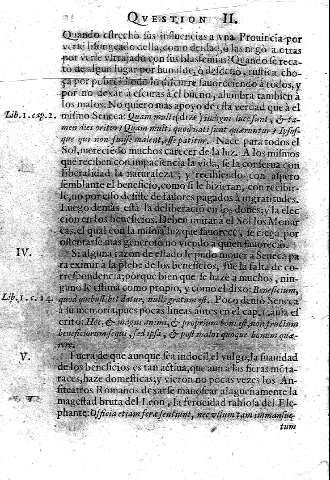 QVESTION II.
Quando estrechò sus influencias a vna Prouincia por
verse lisongeado della, como deidad, ò las negò a otras
por verse vltrajado con sus blasfemias? Quando se reca-
tò de algun lugar por humilde, ò desdeñò, rustica cho-
ça por pobre? Todo lo discurre fauoreciendo a todos, y
por no dexar a escuras à el bueno, alumbra tambien à
los malos. No quiero mas apoyo de esta verdad que à el
Lib. 1. cap. 2. mismo Seneca: Quam multi
que qui non fuisse malent, esse patitur. Nace para todos el
Sol, mereciendo muchos carecer de la luz. A los mismos
que reciben con impaciencia la vida, se la conserua con
liberalidad la naturaleza; y recibiendo con aspero
semblante el beneficio, como si le hizieran, con recibir-
le, no por esso desiste de fauores pagados à ingratitudes.
Luego demàs està la deliberacion en los dones, y la elec-
cion en los beneficios. Deben imitar a el Sol los Monar-
cas, el qual con la misma luz que fauorece, se crece por
ostentarse mas generoso no viendo a quien fauorece.
IV. Si alguna razon de estado le pudo mouer a Seneca pa-
ra eximir a la plebe de los beneficios, fue la falta de co-
rrespondencia; porque bien que se haze a muchos, nin-
guno le estima como propio, y como el dixo: Beneficium,
Lib. 1. c. 14. quod quibuslibet datur, nulli gratum est. Poco deuiò Seneca
a su memoria, pues pocas lineas antes en el cap.
crito: Hoc, & iniqui animi, &
beneficiorum
V. Fuera de que aunque sea indocil el vulgo, la suauidad
de los beneficios es tan actiua, que aun a las fieras mas ra-
paces, haze domesticas, y vieron no pocas vezes los An-
fiteatros Romanos dexarse manosear alagueñamente la
magestad bruta del Leon, la ferocidad rabiosa del Ele-
phante: Officia etiam feræ sentiunt, nec vllum tam immansue-
tum